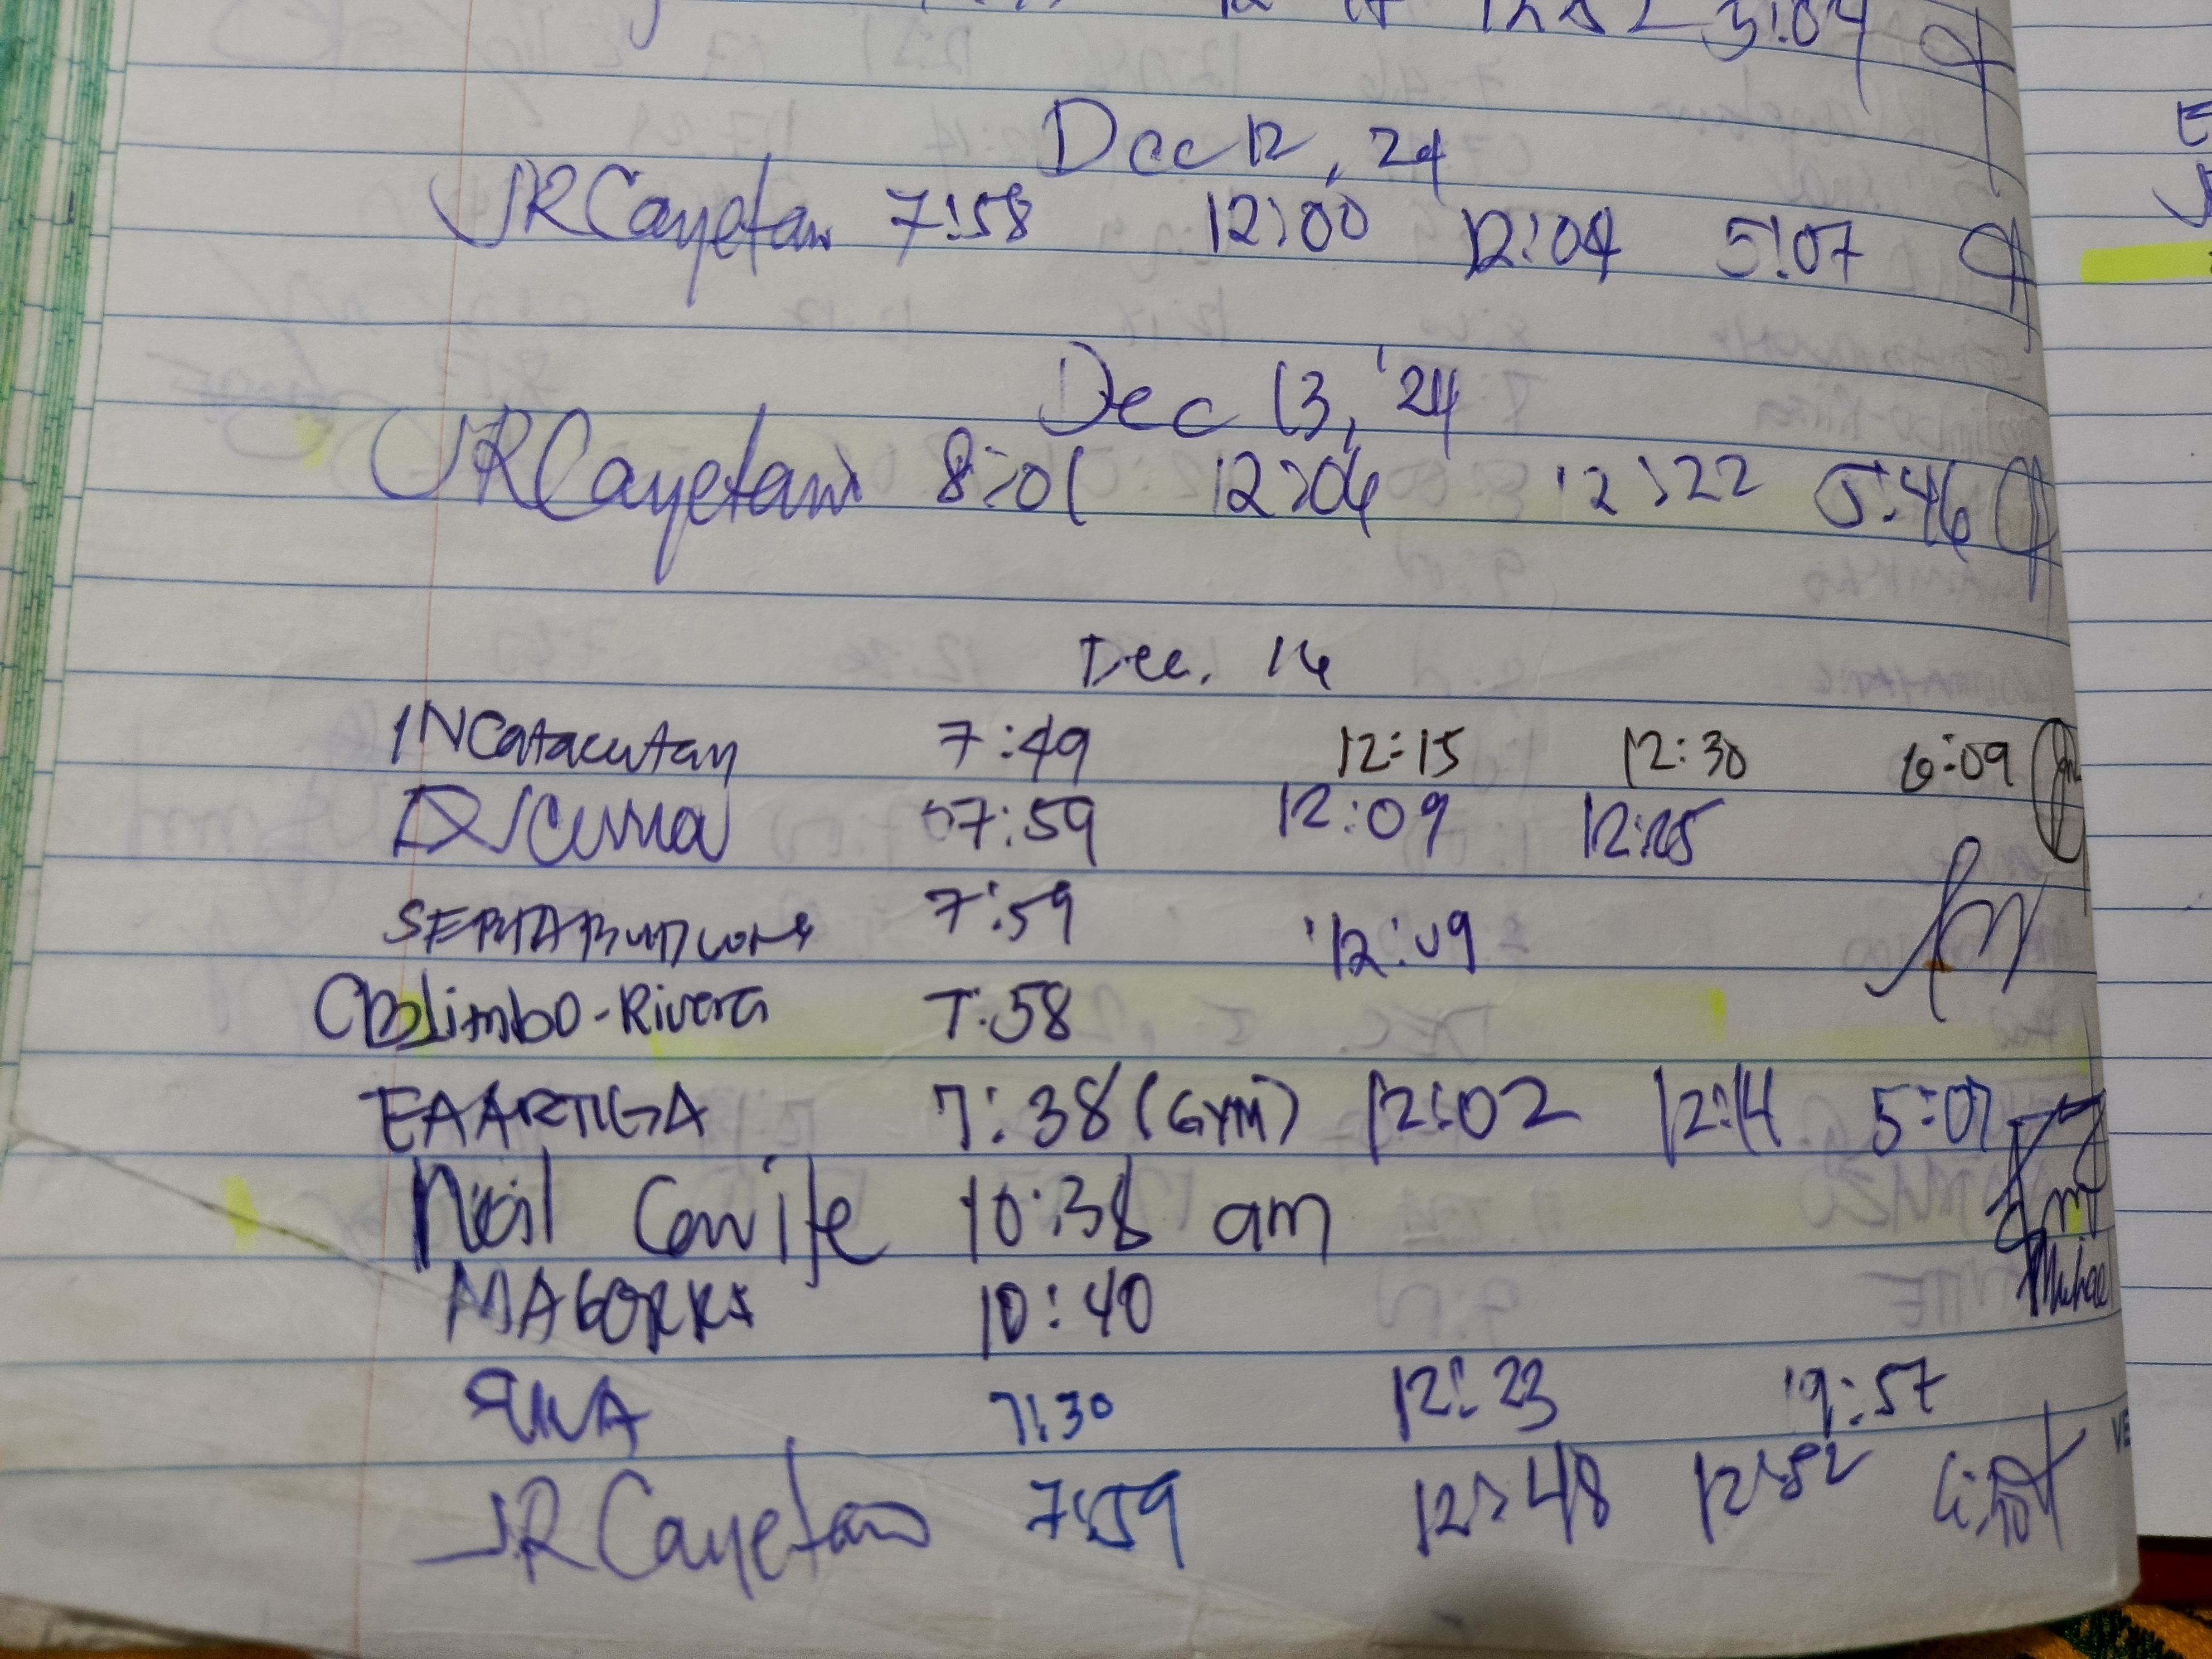 5:04
Dec 12, 24
JRCayetano 7:58 12:00 12:04 5:07
Dec 13, '24
JRCayetano 8:01 12:06 12:22 5:46
Dec. 16
INCatacutan 7:49 12:15 12:30 6:09
07:59 12:09 12:25
7:59 12:09
CDolimbo-Rivera 7:58
EAARTIGA 7:38 (GYM) 12:02 12:14 5:07
Neil Cavite 10:38 am
10:40 Michael
7:30 12:23 19:57
JRCayetano 7:59 12:48 12:52